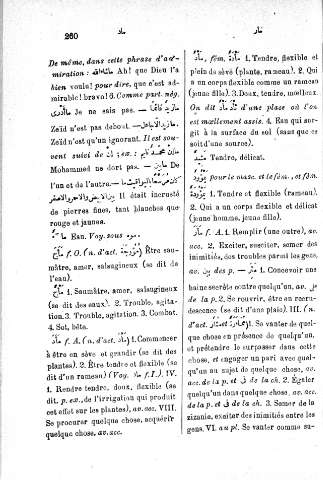 260
ماد
مأر
De même, dans cette phrase d'ad-
miration: ماشاءالله Ah! que Dieu l'a
bien voulu! pour dire, que c'est ad-
mirable! bravo! 6. Comme part. nég.
Je ne sais pas. —
Zeïd n'est pas debout.
Zeïd n'est qu'un ignorant. Il est sou-
vent suivi de
Mohammed ne dort pas. —
L'un et de l'autre.
Il était incrusté
de pierres fines, tant blanches que
rouge et jaunes.
Eau. Voy. sous
f. O. (n. d'act. ) Être sau-
mâtre, amer, salsugineux (se dit de
l'eau).
1. Saumâtre, amer, salsugineux
(se dit des eaux). 2. Trouble, agita-
tion. 3. Trouble, agitation. 3. Combat.
4. Sot, bête.
f. A. (n. d'act. ) 1. Commencer
à être en sève et grandir (se dit des
plantes). 2. Être tendre et flexible (se
dit d'un rameau) (Voy. f. I.). IV.
1. Rendre tendre, doux, flexible (se
dit, p. ex., de l'irrigation qui produit
cet effet sur les plantes), av. acc. VIII.
Se procurer quelque chose, acquérir
quelque chose, av. acc.
مأد, fém. مأدة 1. Tendre, flexible et
plein de sève (plante, rameau). 2. Qui
a un corps flexible comme un rameau
(jeune fille). 3. Doux, tendre, moelleux.
On dit d'une place où l'on
est mollement assis. 4. Eau qui sor-
git à la surface du sol (sans que ce
soit d'une source).
Tendre, délicat.
pour le masc. et le fém., et fém.
1. Tendre et flexible (rameau).
2. Qui a un corps flexible et délicat
(jeune homme, jeune fille).
f. A. 1. Remplir (une outre), av.
acc. 2. Exciter, susciter, semer des
inimitiés, des troubles parmi les gens,
av. بين des p. — 1. Concevoir une
haine secrète contre quelqu'un, av. على
de la p. 2. Se rouvrir, être en recru-
descence (se dit d'une plaie). III. (n.
d'act. ) 1. Se vanter de quel-
que chose en présence de quelqu'un,
et prétendre le surpasser dans cette
chose, et engager un pari avec quel-
qu'un au sujet de quelque chose, av.
acc. de la p. et في de la ch. 2. Égaler
quelqu'un dans quelque chose, av. acc.
de la p. et في de la ch. 3. Semer de la
zizanie, exciter des inimitiés entre les
gens. VI. au pl. Se vanter comme su-